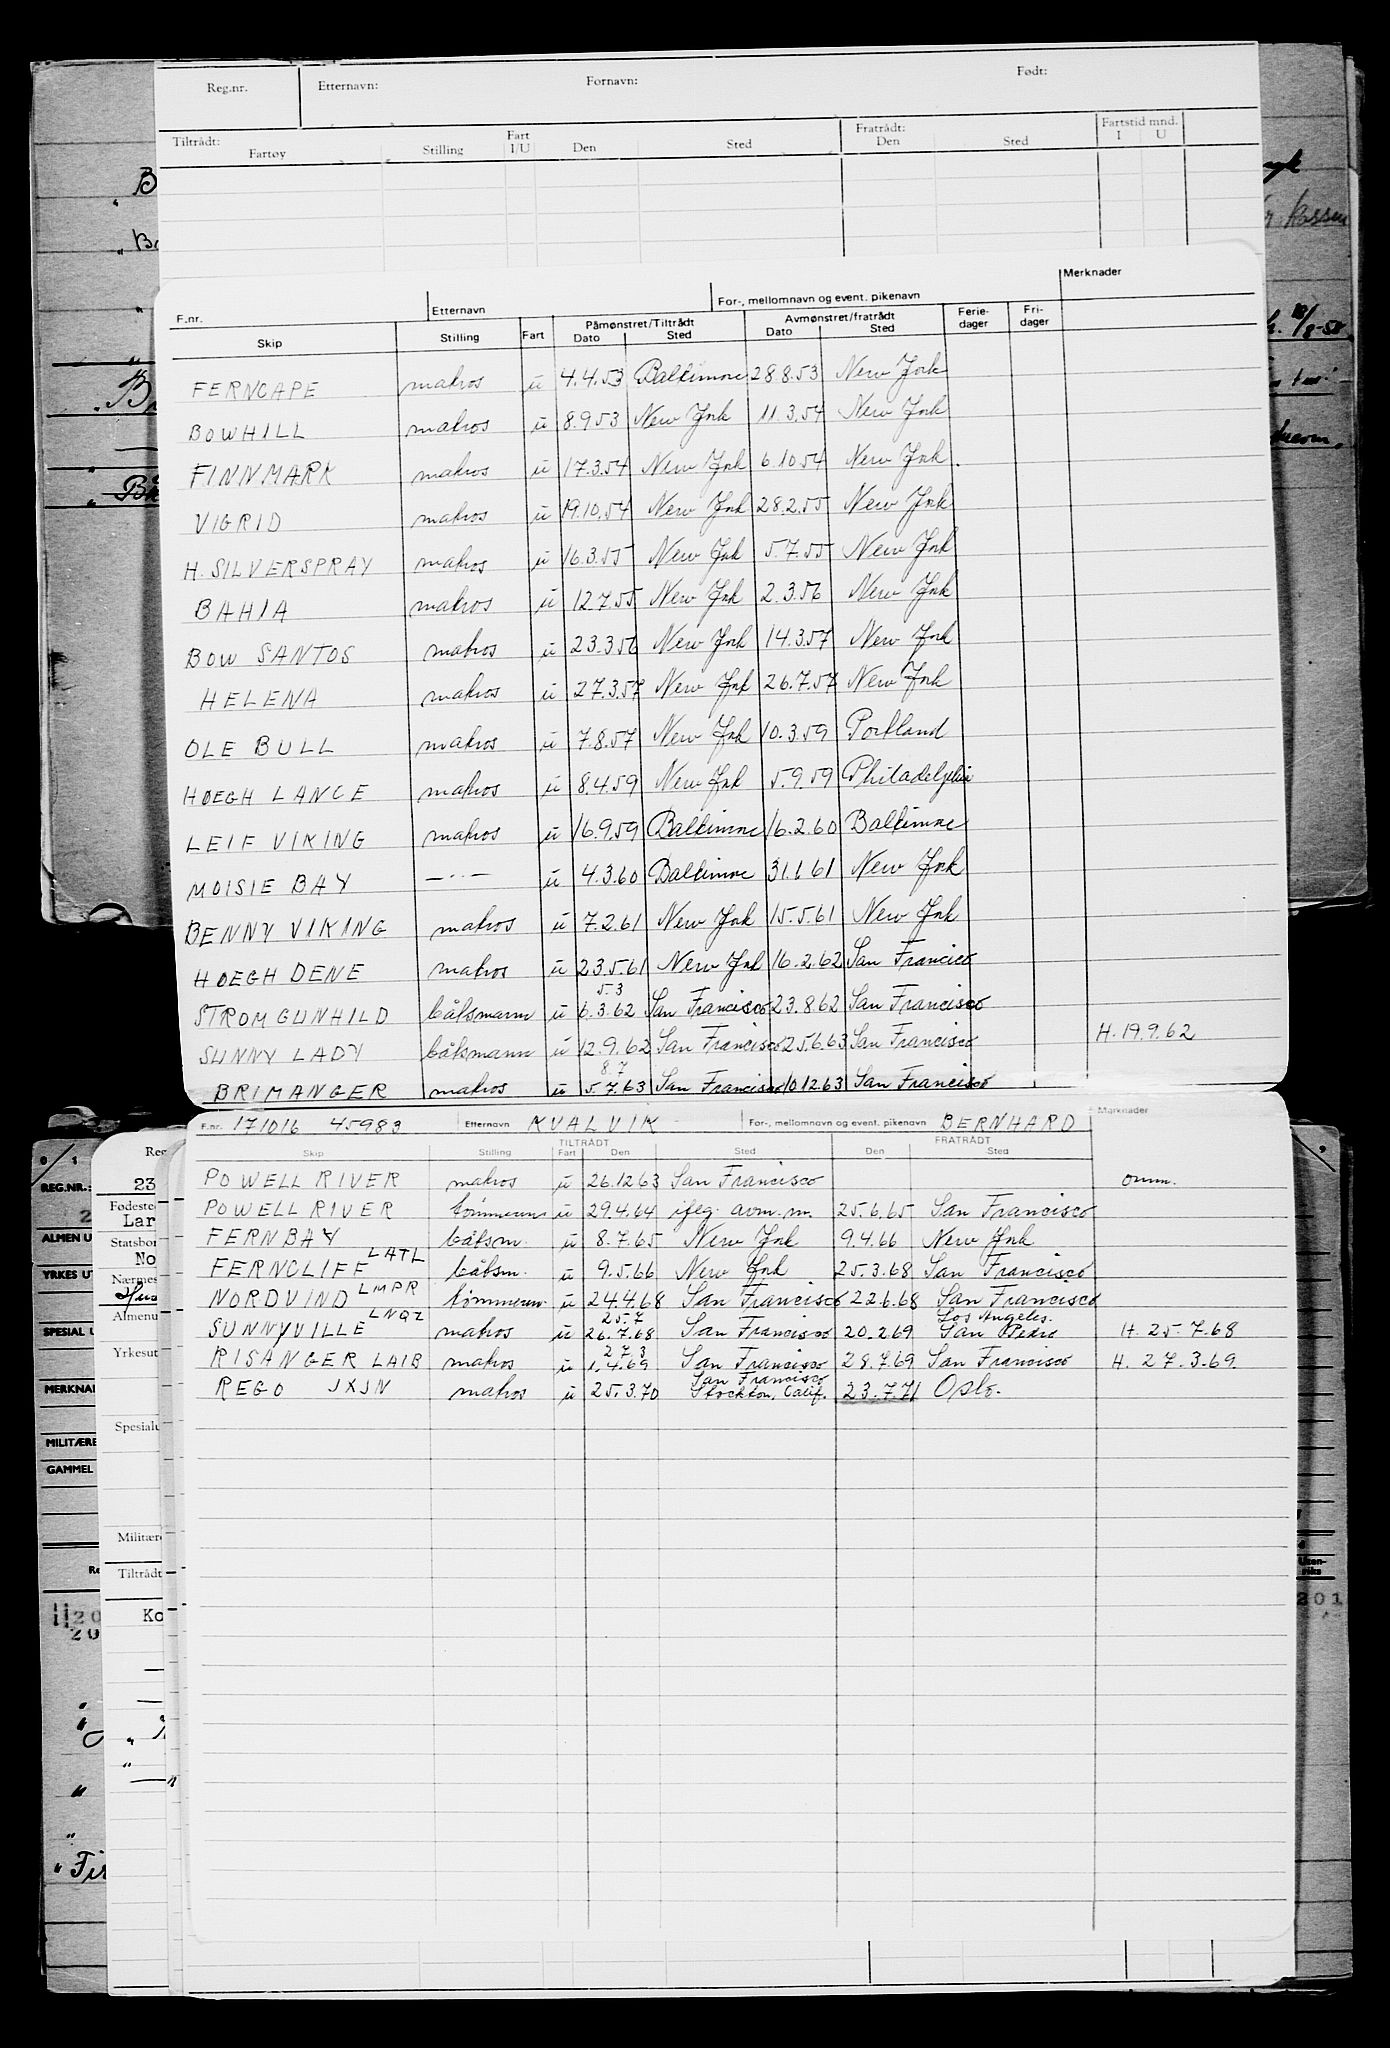 Reg.nr. Etternavn: Fornavn: Født:
Tiltrådt: Fratrådt: Fartstid mnd.
Fartøy Stilling Fart I/U Den Sted Den Sted I U
F.nr. Etternavn For-, mellomnavn og event. pikenavn Merknader
Skip Stilling Fart Påmønstret/Tiltrådt Dato Sted Avmønstret/fratrådt Dato Sted Ferie-dager Fri-dager
FERNCAPE matros u 4.4.53 Baltimore 28.8.53 New York
BOWHILL matros u 8.9.53 New York 11.3.54 New York
FINNMARK matros u 17.3.54 New York 6.10.54 New York
VIGRID matros u 19.10.54 New York 28.2.55 New York
H. SILVERSPRAY matros u 16.3.55 New York 5.7.55 New York
BAHIA matros u 12.7.55 New York 2.3.56 New York
BOW SANTOS matros u 23.3.56 New York 14.3.57 New York
HELENA matros u 27.3.57 New York 26.7.57 New York
OLE BULL matros u 7.8.57 New York 10.3.59 Portland
HØEGH LANCE matros u 8.4.59 New York 5.9.59 Philadelphia
LEIF VIKING matros u 16.9.59 Baltimore 16.2.60 Baltimore
MOISIE BAY —..— u 4.3.60 Baltimore 31.1.61 New York
BENNY VIKING matros u 7.2.61 New York 15.5.61 New York
HØEGH DENE matros u 23.5.61 New York 16.2.62 San Francisco
5.3
STROM GUNHILD båtsmann u 6.3.62 San Francisco 23.8.62 San Francisco
SUNNY LADY båtsmann u 12.9.62 San Francisco 25.6.63 San Francisco H. 19.9.62
8.7
BRIMANGER matros u 5.7.63 San Francisco 10.12.63 San Francisco
F.nr. 171016 45983 Etternavn KVALVIK For-, mellomnavn og event. pikenavn BERNHARD Merknader
TILTRÅDT FRATRÅDT
Skip Stilling Fart Den Sted Den Sted
POWELL RIVER matros u 26.12.63 San Francisco omm.
POWELL RIVER tømmerm u 29.4.64 ifлg. avm. m. 25.6.65 San Francisco
FERNBAY båtsm. u 8.7.65 New York 9.4.66 New York
FERNCLIFF LATL båtsm. u 9.5.66 New York 25.3.68 San Francisco
NORDVIND LMPR tømmerm. u 24.4.68 San Francisco 22.6.68 San Francisco
25.7 Los Angeles.
SUNNYVILLE LNQZ matros u 26.7.68 San Francisco 20.2.69 San Pedro H. 25.7.68
27.3
RISANGER LAIB matros u 1.4.69 San Francisco 28.7.69 San Francisco H. 27.3.69
San Francisco
REGO JXJN matros u 25.3.70 Stockton, Calif. 23.7.71 Oslo.
REG.NR.:
ALMEN U
YRKES UT
SPECIAL U
MERKNA
MILITÆRE
GAMMEL
Reg
23
Fødested
Lar
Statsbor
No
Nærmes
Almenu
Yrkesut
Spesialu
Militære
Tiltrådt
Ko
Uten-riks
201